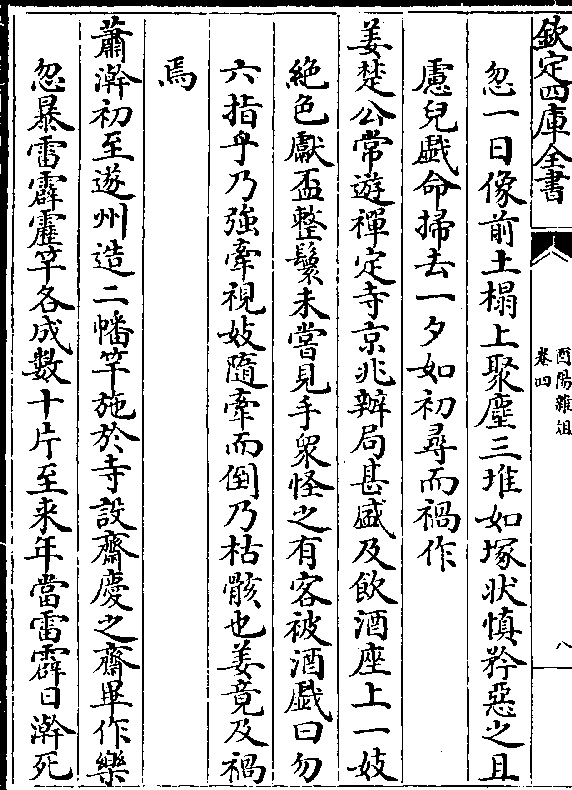 欽定四庫全書
酉陽雜俎
卷四
八
忽一日像前土榻上聚塵三堆如塚狀慎矜惡之且
慮兒戲命掃去一夕如初尋而禍作
姜楚公常遊禪定寺京兆辦局甚盛及飲酒座上一妓
絶色獻盃整鬟未嘗見手衆怪之有客被酒戲曰勿
六指乎乃強牽視妓隨牽而倒乃枯骸也姜竟及禍
焉
蕭澣初至遂州造二幡竿施於寺設齋慶之齋畢作樂
忽暴雷霹靂竿各成數十片至来年當雷霹日澣死